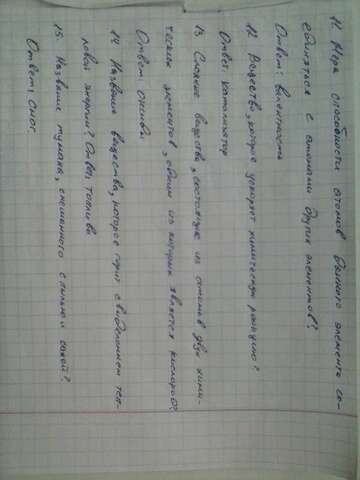 11. Мера способности атомов данного элемента со-
единяться с атомами других элементов?
Ответ: Валентность
12 Вещество, которое ускоряет химическую реакцию?
Ответ: катализатор
13. Сложные вещества, состоящие из атомов двух хими-
ческих элементов, одним из которых является кислород?
Ответ: оксиды
14. Название вещества, которое горит с выделением теп-
ловой энергии? Ответ: топливо
15. Название тумана, смешанного с пылью и сажей?
Ответ: смог